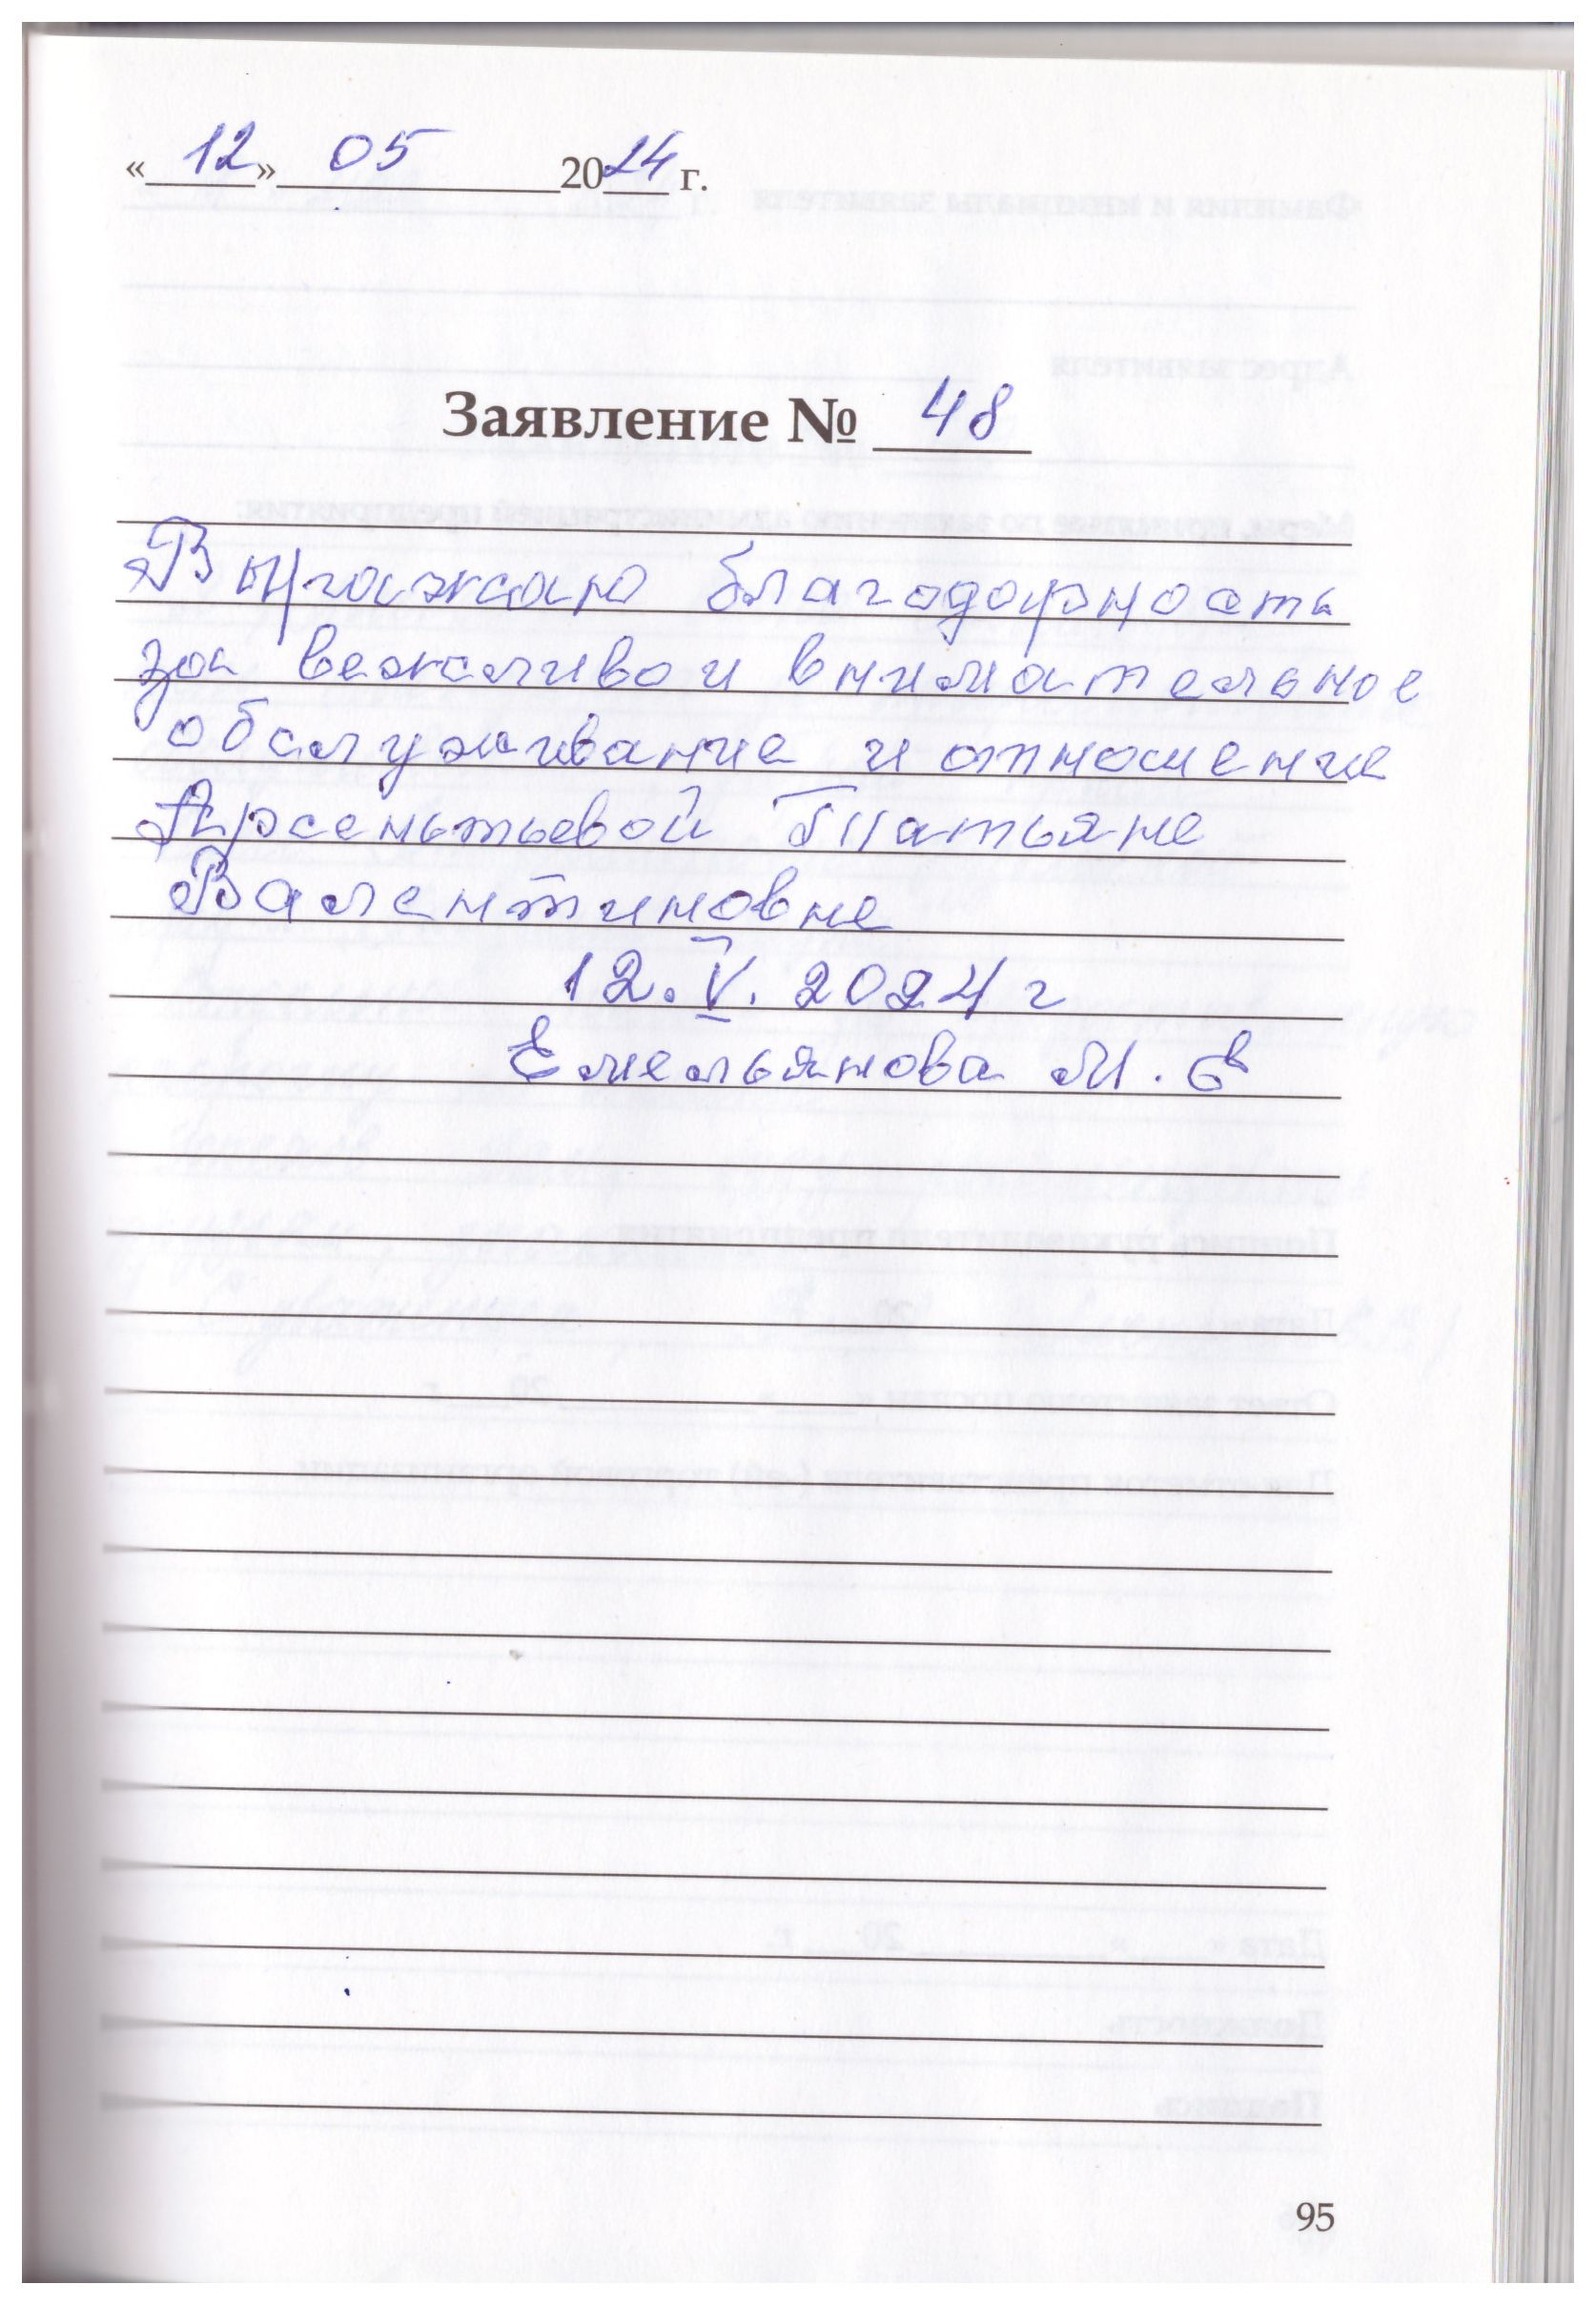 «12» 05 2024 г.
Заявление № 48
Выражаю благодарность
за вежливо и внимательное
обслуживание и отношение
Арсентьевой Татьяне
Валентиновне
12. V. 2024 г
Емельянова М. В
95